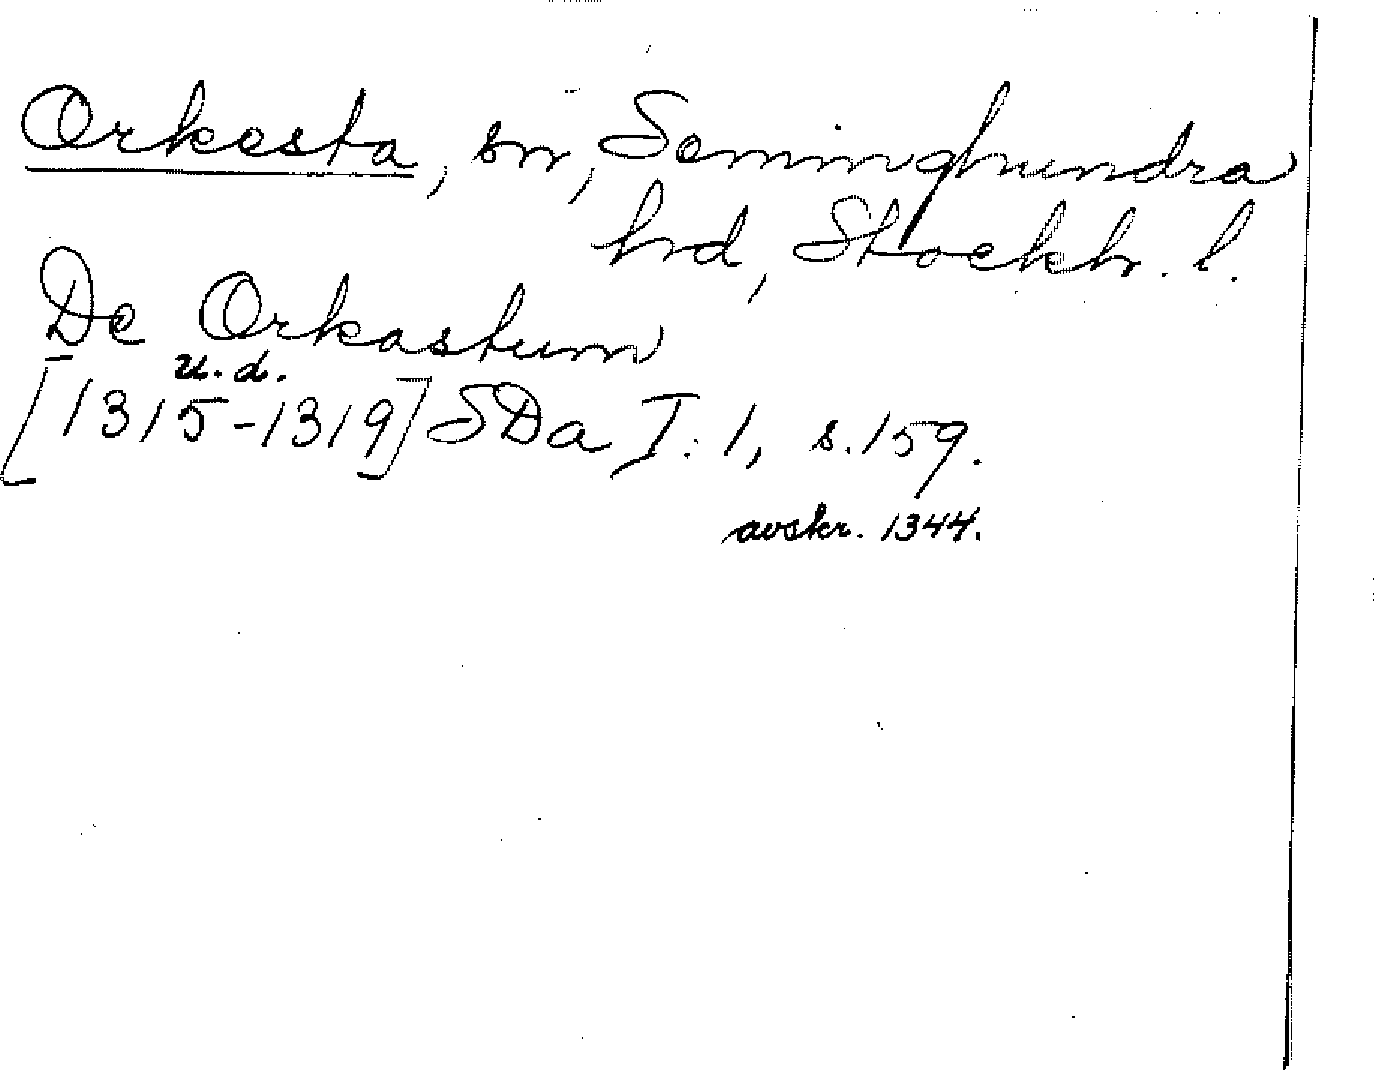 Orkesta, sn, Seminghundra
hrd, Stockh. l.
De Orkastum
u.d.
[1315-1319] SDa I:1, s.159.
avskr. 1344.